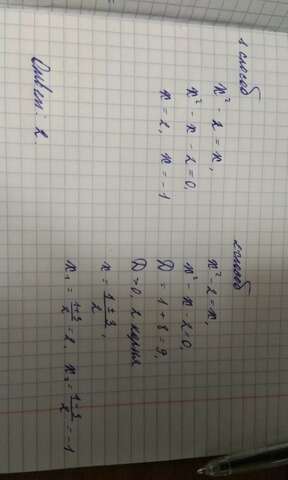 1 способ
x² - 2 = x,
x² - x - 2 = 0,
x = 2, x = -1
Ответ: 2.
2 способ
x² - 2 = x,
x² - x - 2 = 0,
D = 1 + 8 = 9,
D > 0, 2 корня
x = (1 ± 3)/2,
x₁ = (1+3)/2 = 2, x₂ = (1-3)/2 = -1